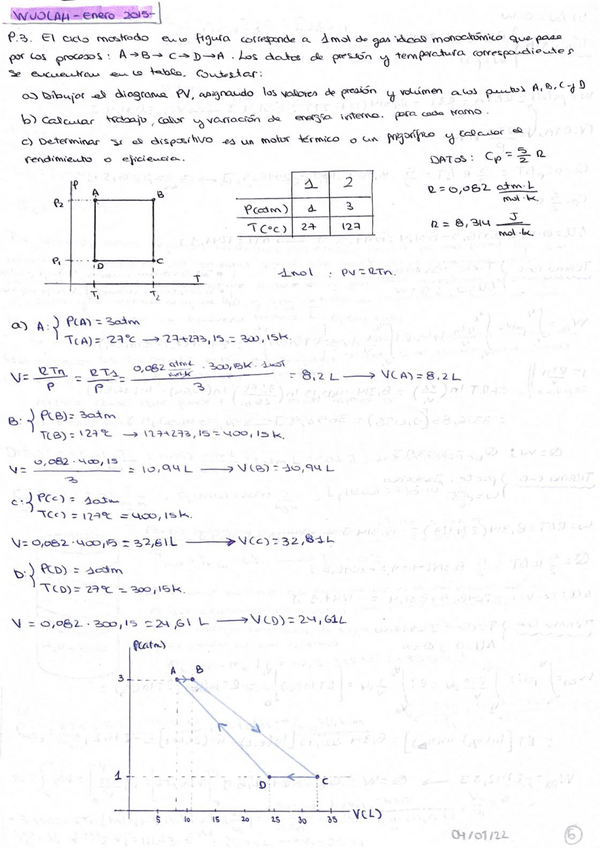 WUOLAH - Enero 2015-
P.3. El ciclo mostrado en la figura corresponde a 1 mol de gas ideal monoatómico que pasa
por los procesos: A→B→C→D→A. Los datos de presión y temperatura correspondientes
se encuentran en la tabla. Contestar:
a) Dibujar el diagrama PV, asignando los valores de presión y volumen a los puntos A, B, C y D
b) Calcular trabajo, calor y variación de energía interna. para cada tramo.
c) Determinar si el dispositivo es un motor térmico o un frigorífico y calcular el
rendimiento o eficiencia.
DATOS: Cp = 5/2 R
R = 0,082 atm·L/mol·K
R = 8,314 J/mol·K
P
P2
A
B
P1
D
C
T1
T2
T
1 2
P(atm) 1 3
T(ºC) 27 127
1mol : PV = RTn.
a) A: } P(A) = 3atm
T(A) = 27ºC → 27+273,15 = 300,15K
V = RTn/P = RT1/P = 0,082 · 300,15K · 1mol / 3 = 8,2 L → V(A) = 8.2 L
B: } P(B) = 3atm
T(B) = 127ºC → 127+273,15 = 400,15K.
V = 0,082·400,15 / 3 = 10,94 L → V(B) = 10,94 L
C: } P(C) = 1atm
T(C) = 127ºC = 400,15K.
V = 0,082·400,15 = 32,81L → V(C) = 32,81L
D: } P(D) = 1atm
T(D) = 27ºC = 300,15K.
V = 0,082·300,15 = 24,61 L → V(D) = 24,61L
P(atm)
3
A
B
1
D
C
5 10 15 20 25 30 35 V(L)
04/01/22
6